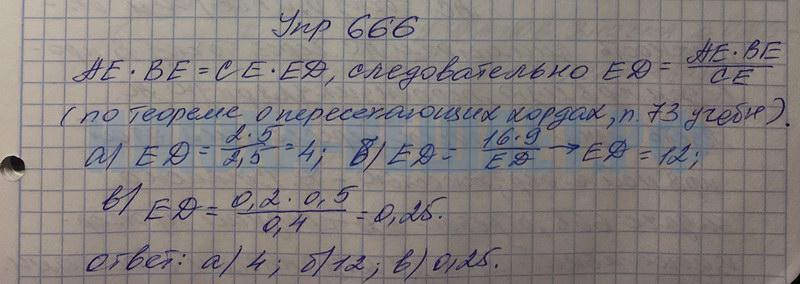 Упр 666
AE · BE = CE · ED, следовательно ED = AE · BE / CE
(по теореме о пересекающих хордах, п. 73 учебн).
а) ED = 2 · 5 / 2,5 = 4; б) ED = 16 · 9 / ED → ED = 12;
в) ED = 0,2 · 0,5 / 0,4 = 0,25.
ответ: а) 4; б) 12; в) 0,25.